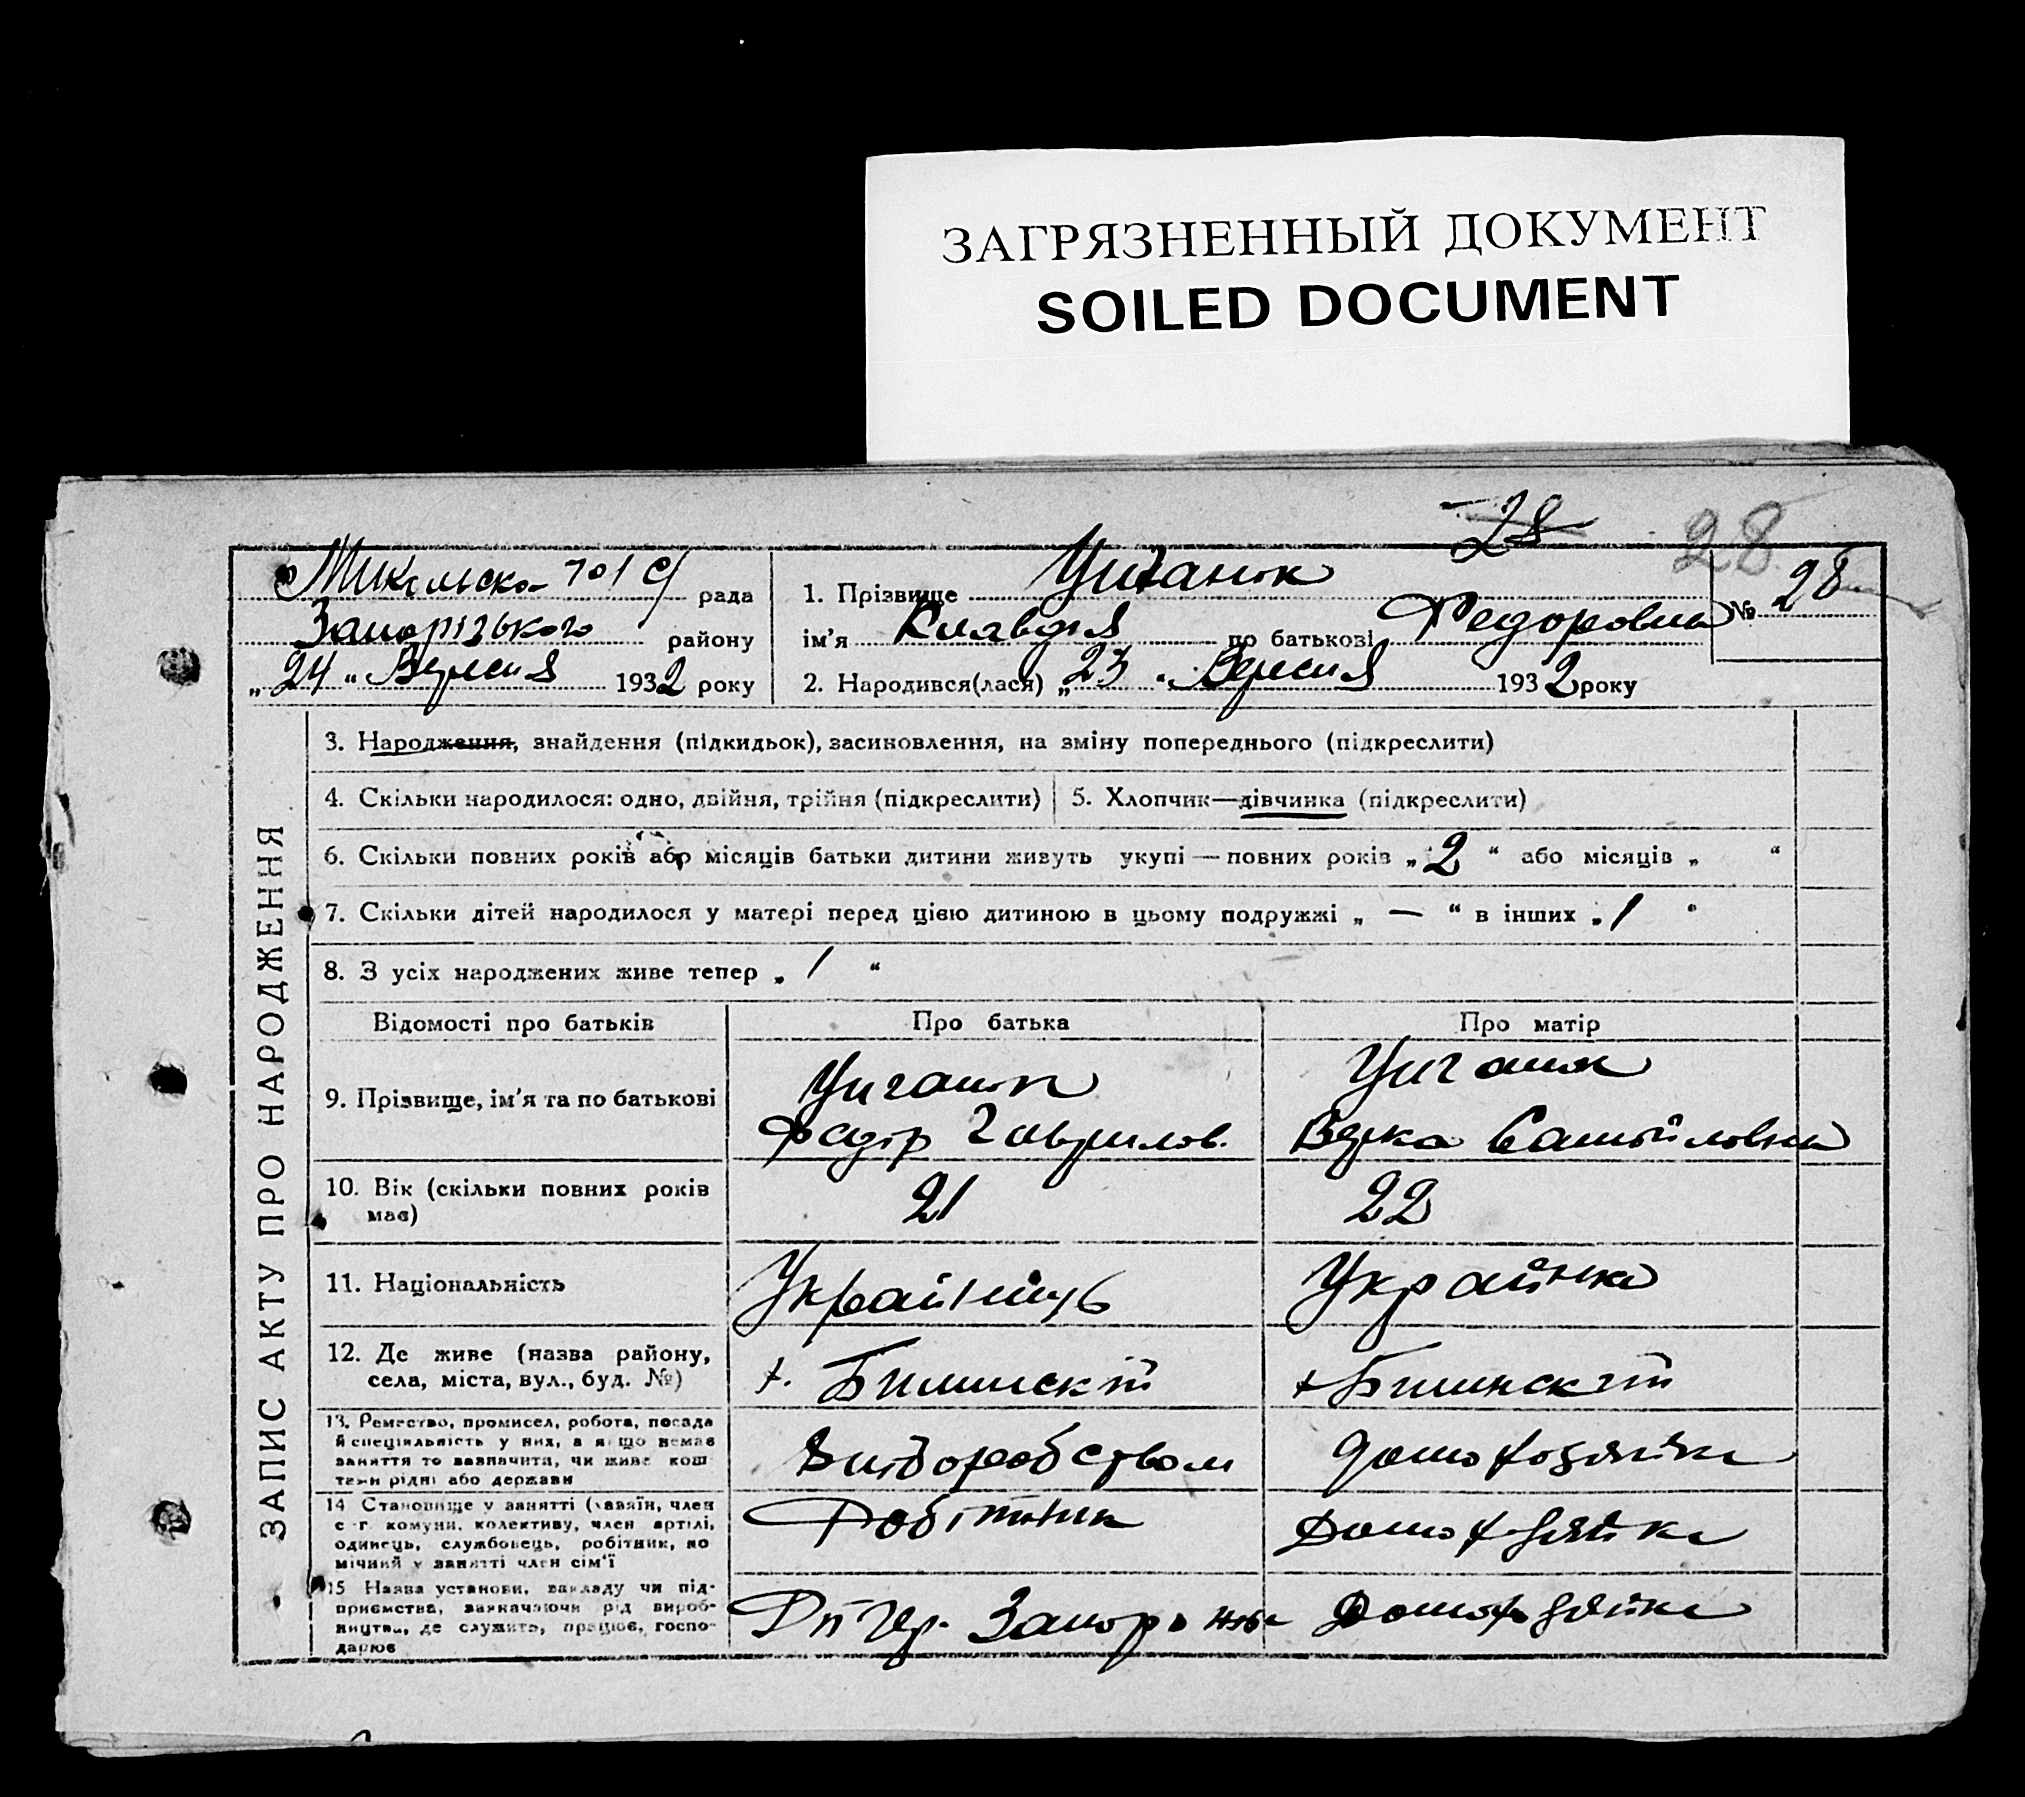 ЗАГРЯЗНЕННЫЙ ДОКУМЕНТ
SOILED DOCUMENT
28 28
рада
Запорізького району
„24“ Вересня 1932 року
1. Прізвище Циганок
ім'я Клавдія по батькові Федоровна
№ 28
2. Народився(лася) „23“ Вересня 1932 року
ЗАПИС АКТУ ПРО НАРОДЖЕННЯ
3. Народження, знайдення (підкидьок), засиновлення, на зміну попереднього (підкреслити)
4. Скільки народилося: одно, двійня, трійня (підкреслити) 5. Хлопчик—дівчинка (підкреслити)
6. Скільки повних років або місяців батьки дитини живуть укупі — повних років „2“ або місяців „ “
7. Скільки дітей народилося у матері перед цією дитиною в цьому подружжі „—“ в інших „1“
8. З усіх народжених живе тепер „1“
Відомості про батьків Про батька Про матір
9. Прізвище, ім'я та по батькові
Циганок Циганок
Федір Гаврилов. Самойловна
10. Вік (скільки повних років має) 21 22
11. Національність Українець Українка
12. Де живе (назва району,
села, міста, вул., буд. №)
13. Ремество, промисел, робота, посада
й спеціяльність у них, а якщо немає
заняття то зазначити, чи живе кош-
тами рідні або держави
домохозяйка
14 Становище у занятті (хазяїн, член
с-г. комуни, колективу, член артілі,
одинець, службовець, робітник, по
мічний у занятті член сім'ї
Робітник Домохозяйка
15 Назва установи, закладу чи під-
приємства, зазначаючи рід вироб-
ництва, де служить, працює, госпо-
дарює
Домохозяйка